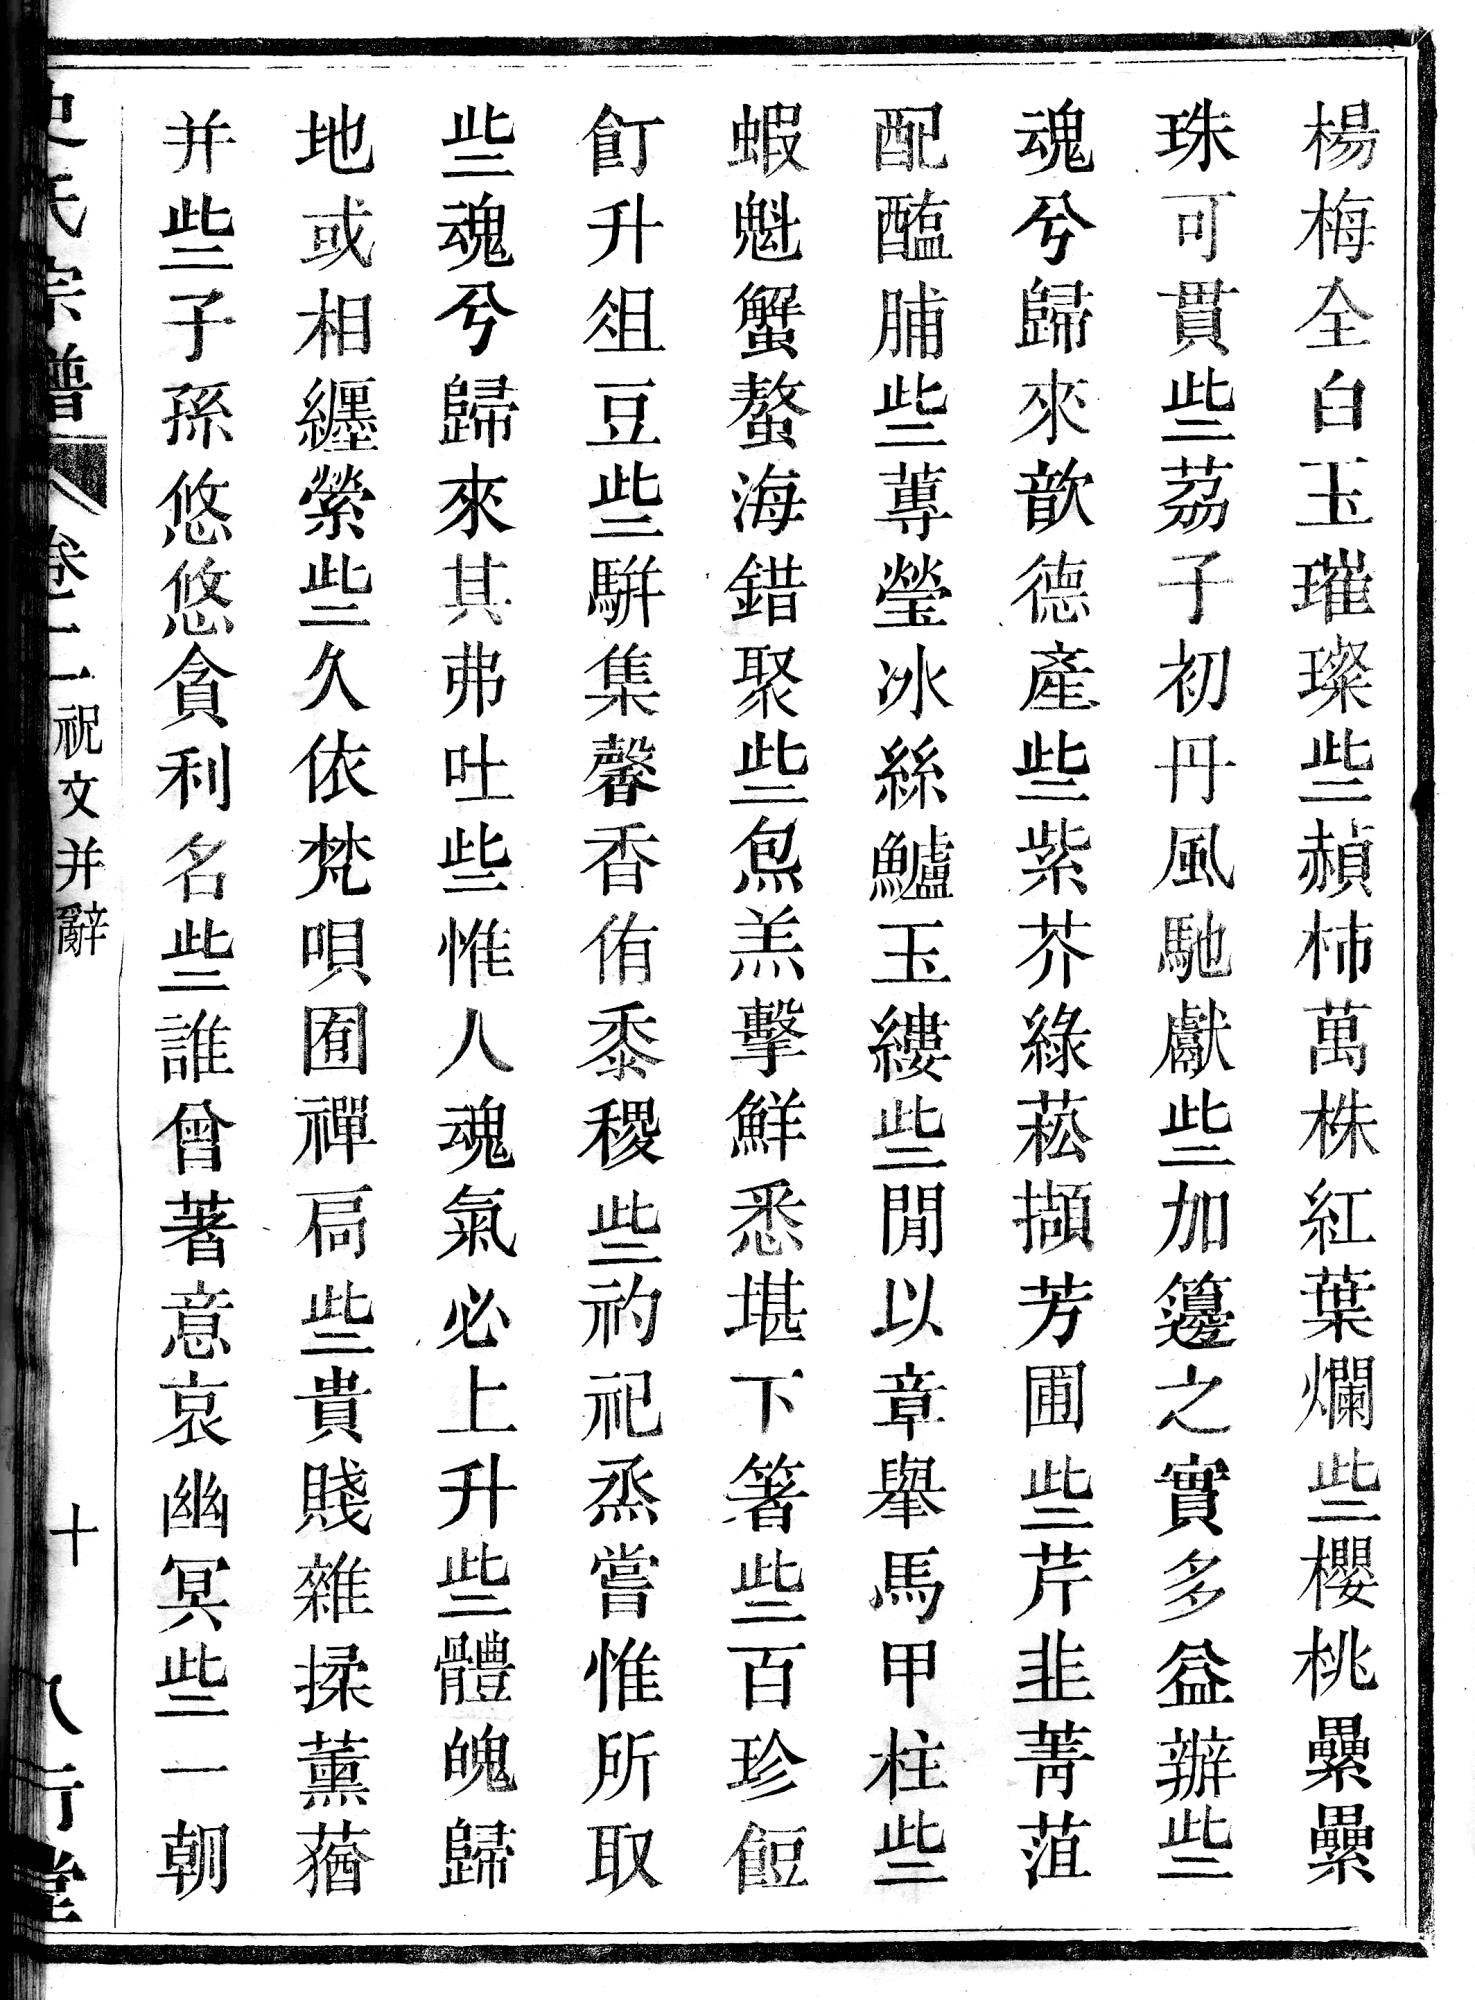 楊梅全白玉璀璨些赬柿萬株紅葉爛些櫻桃纍纍
珠可貫些荔子初丹風馳獻些加籩之實多益辦些
魂兮歸來歆德產些紫芥綠菘擷芳圃些芹韭菁菹
配醢脯些蓴瑩冰絲鱸玉縷些閒以章舉馬甲柱些
蝦魁蟹螯海錯聚些炰羔擊鮮悉堪下箸些百珍餖
飣升俎豆些駢集馨香侑黍稷些礿祀烝嘗惟所取
些魂兮歸來其弗吐些惟人魂氣必上升些體魄歸
地或相纏縈些久依梵唄囿禪扃些貴賤雜揉薰蕕
并些子孫悠悠貪利名些誰曾著意哀幽冥些一朝
史氏宗譜 卷二 祝文并辭 十 八行堂